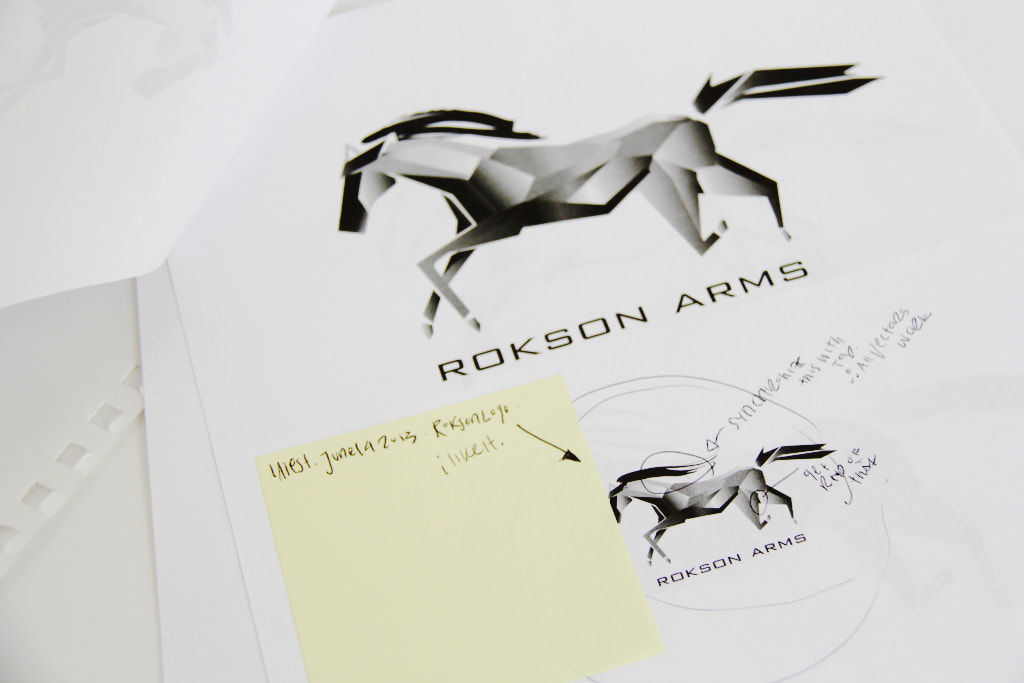 ROKSON ARMS
LATEST. June 19 2013. Rokson Logo.
i like it.
synchronize
this with
top.
vectors
work
get
rid
of
that
ROKSON ARMS